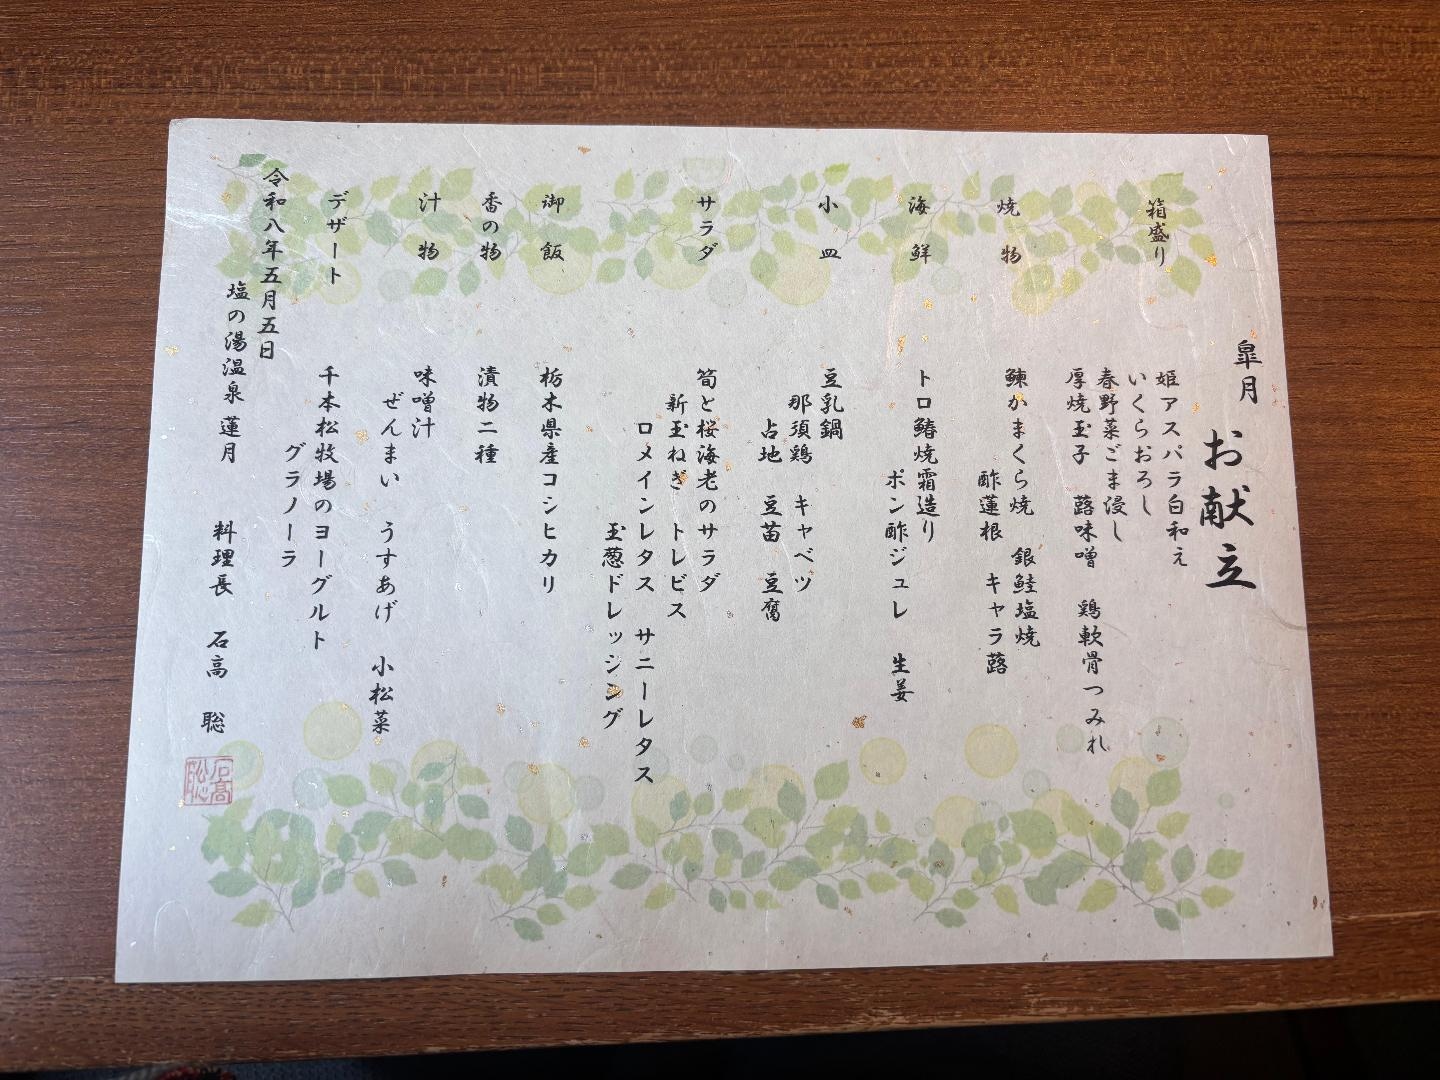 皐月 お献立
箱盛り
姫アスパラ白和え
いくらおろし
春野菜ごま浸し
厚焼玉子 蕗味噌 鶏軟骨つみれ
焼物
鰊かまくら焼 銀鮭塩焼
酢蓮根 キャラ蕗
海鮮
トロ鰆焼霜造り
ポン酢ジュレ 生姜
小皿
豆乳鍋
那須鶏 キャベツ
占地 豆苗 豆腐
サラダ
筍と桜海老のサラダ
新玉ねぎ トレビス
ロメインレタス サニーレタス
玉葱ドレッシング
御飯
栃木県産コシヒカリ
香の物
漬物二種
汁物
味噌汁
ぜんまい うすあげ 小松菜
デザート
千本松牧場のヨーグルト
グラノーラ
令和八年五月五日
塩の湯温泉 蓮月 料理長 石高 聡
石高聡